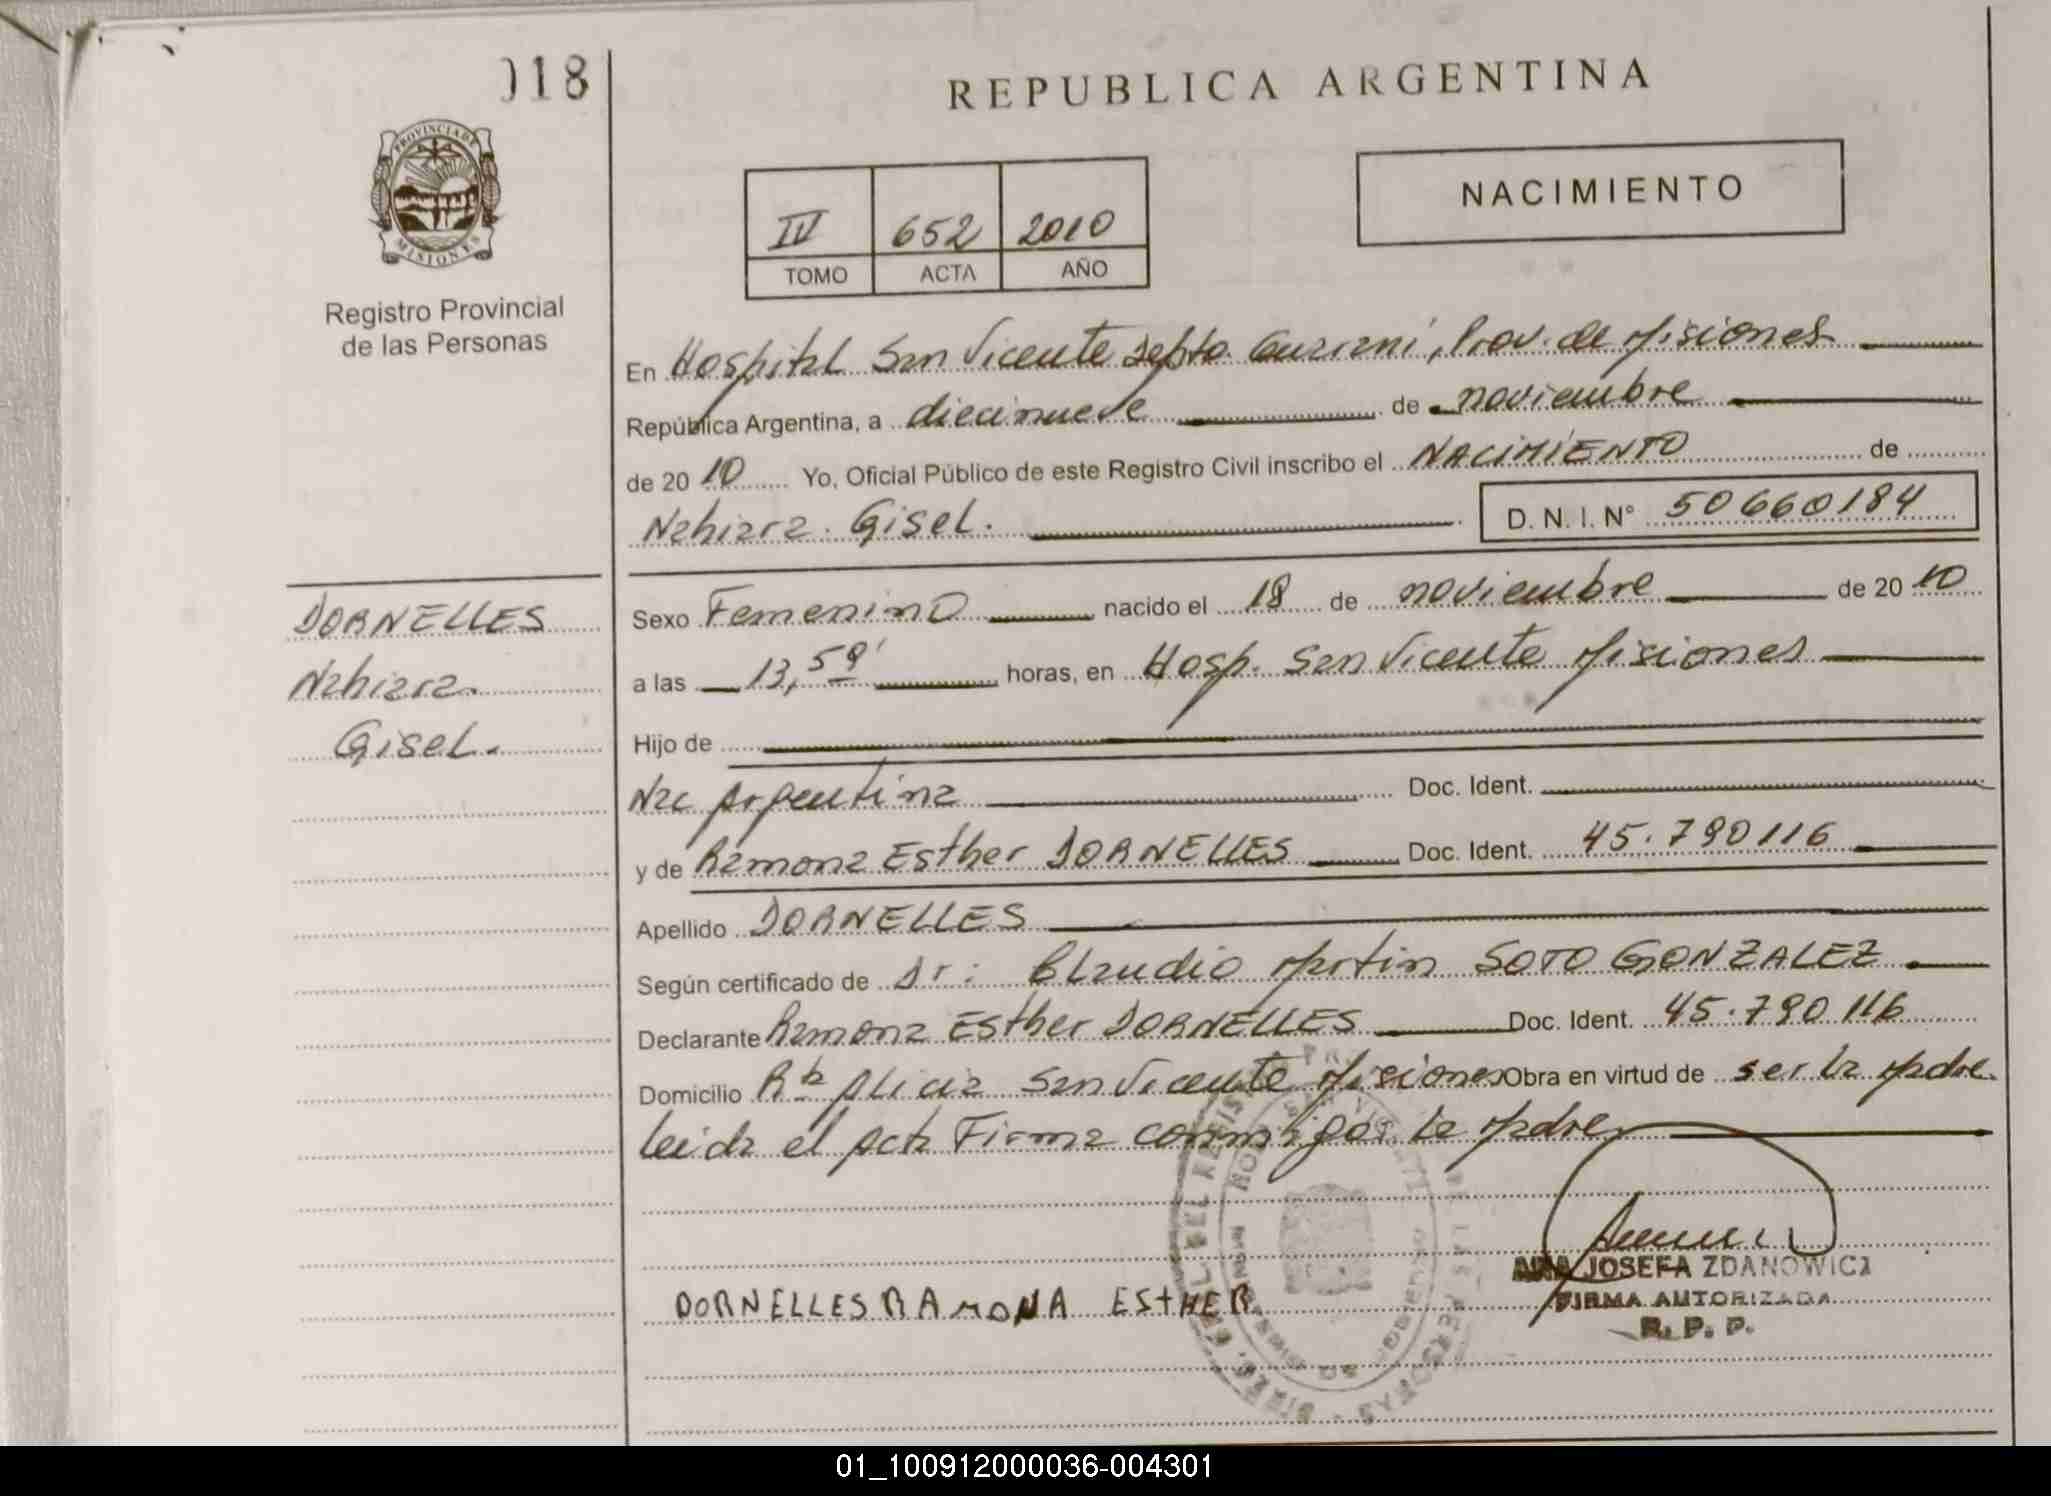 018
REPUBLICA ARGENTINA
PROVINCIA DE
MISIONES
Registro Provincial
de las Personas
NACIMIENTO
IV 652 2010
TOMO ACTA AÑO
En Hospital San Vicente Depto. Guarani, Prov. de Misiones
República Argentina, a diecinueve de noviembre
de 20 10 Yo, Oficial Público de este Registro Civil inscribo el NACIMIENTO de
Nahiara Gisel. D. N. I. N° 50660184
DORNELLES
Nahiara
Gisel.
Sexo Femenino nacido el 18 de noviembre de 20 10
a las 13,59' horas, en Hosp. San Vicente Misiones
Hijo de
Nac Argentina Doc. Ident.
y de Ramona Esther DORNELLES Doc. Ident. 45.790116
Apellido DORNELLES
Según certificado de Dr: Claudio Martin SOTO GONZALEZ
Declarante Ramona Esther DORNELLES Doc. Ident. 45.790116
Domicilio Bº Alicia San Vicente Misiones Obra en virtud de ser la Madre
leida el Acta Firma conmigo: la Madre
DORNELLES RAMONA ESTHER
ANA JOSEFA ZDANOWICZ
FIRMA AUTORIZADA
R. P. P.
01_100912000036-004301